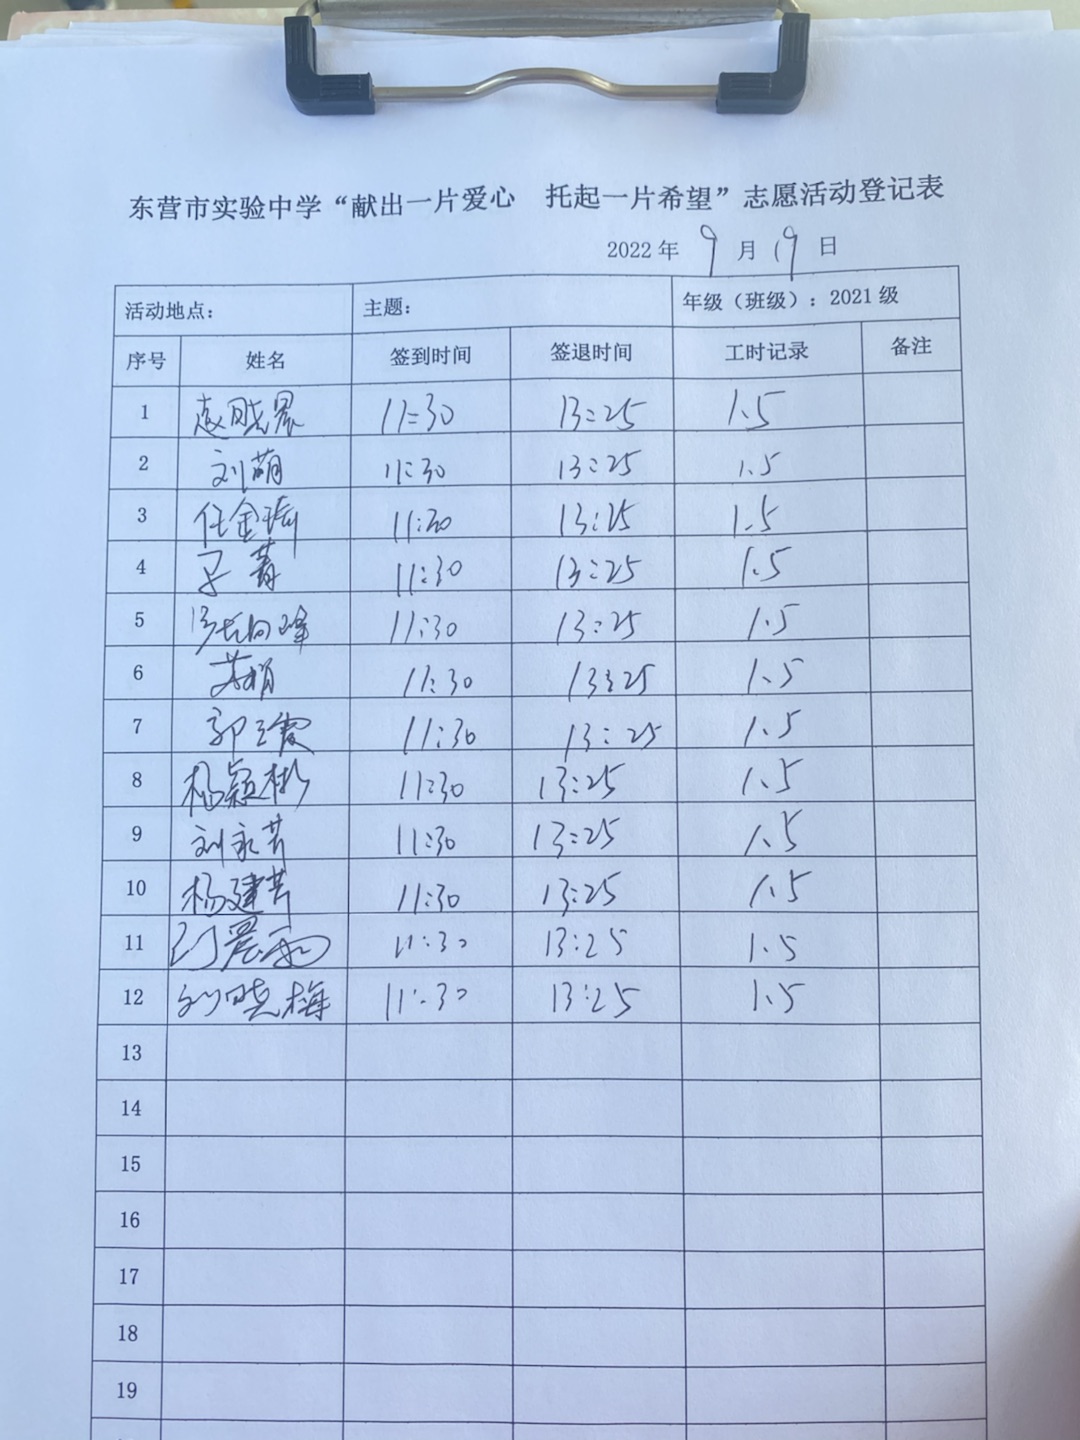 东营市实验中学“献出一片爱心 托起一片希望”志愿活动登记表
2022年 9 月 19 日
活动地点： 主题： 年级（班级）：2021级
序号 姓名 签到时间 签退时间 工时记录 备注
1 赵晓晨 11:30 13:25 1.5
2 刘萌 11:30 13:25 1.5
3 任金 11:30 13:25 1.5
4 菁 11:30 13:25 1.5
5 峰 11:30 13:25 1.5
6 苏梢 11:30 13:25 1.5
7 郭 霞 11:30 13:25 1.5
8 杨颖彬 11:30 13:25 1.5
9 刘永芹 11:30 13:25 1.5
10 杨建芹 11:30 13:25 1.5
11 11:30 13:25 1.5
12 刘晓梅 11:30 13:25 1.5
13
14
15
16
17
18
19